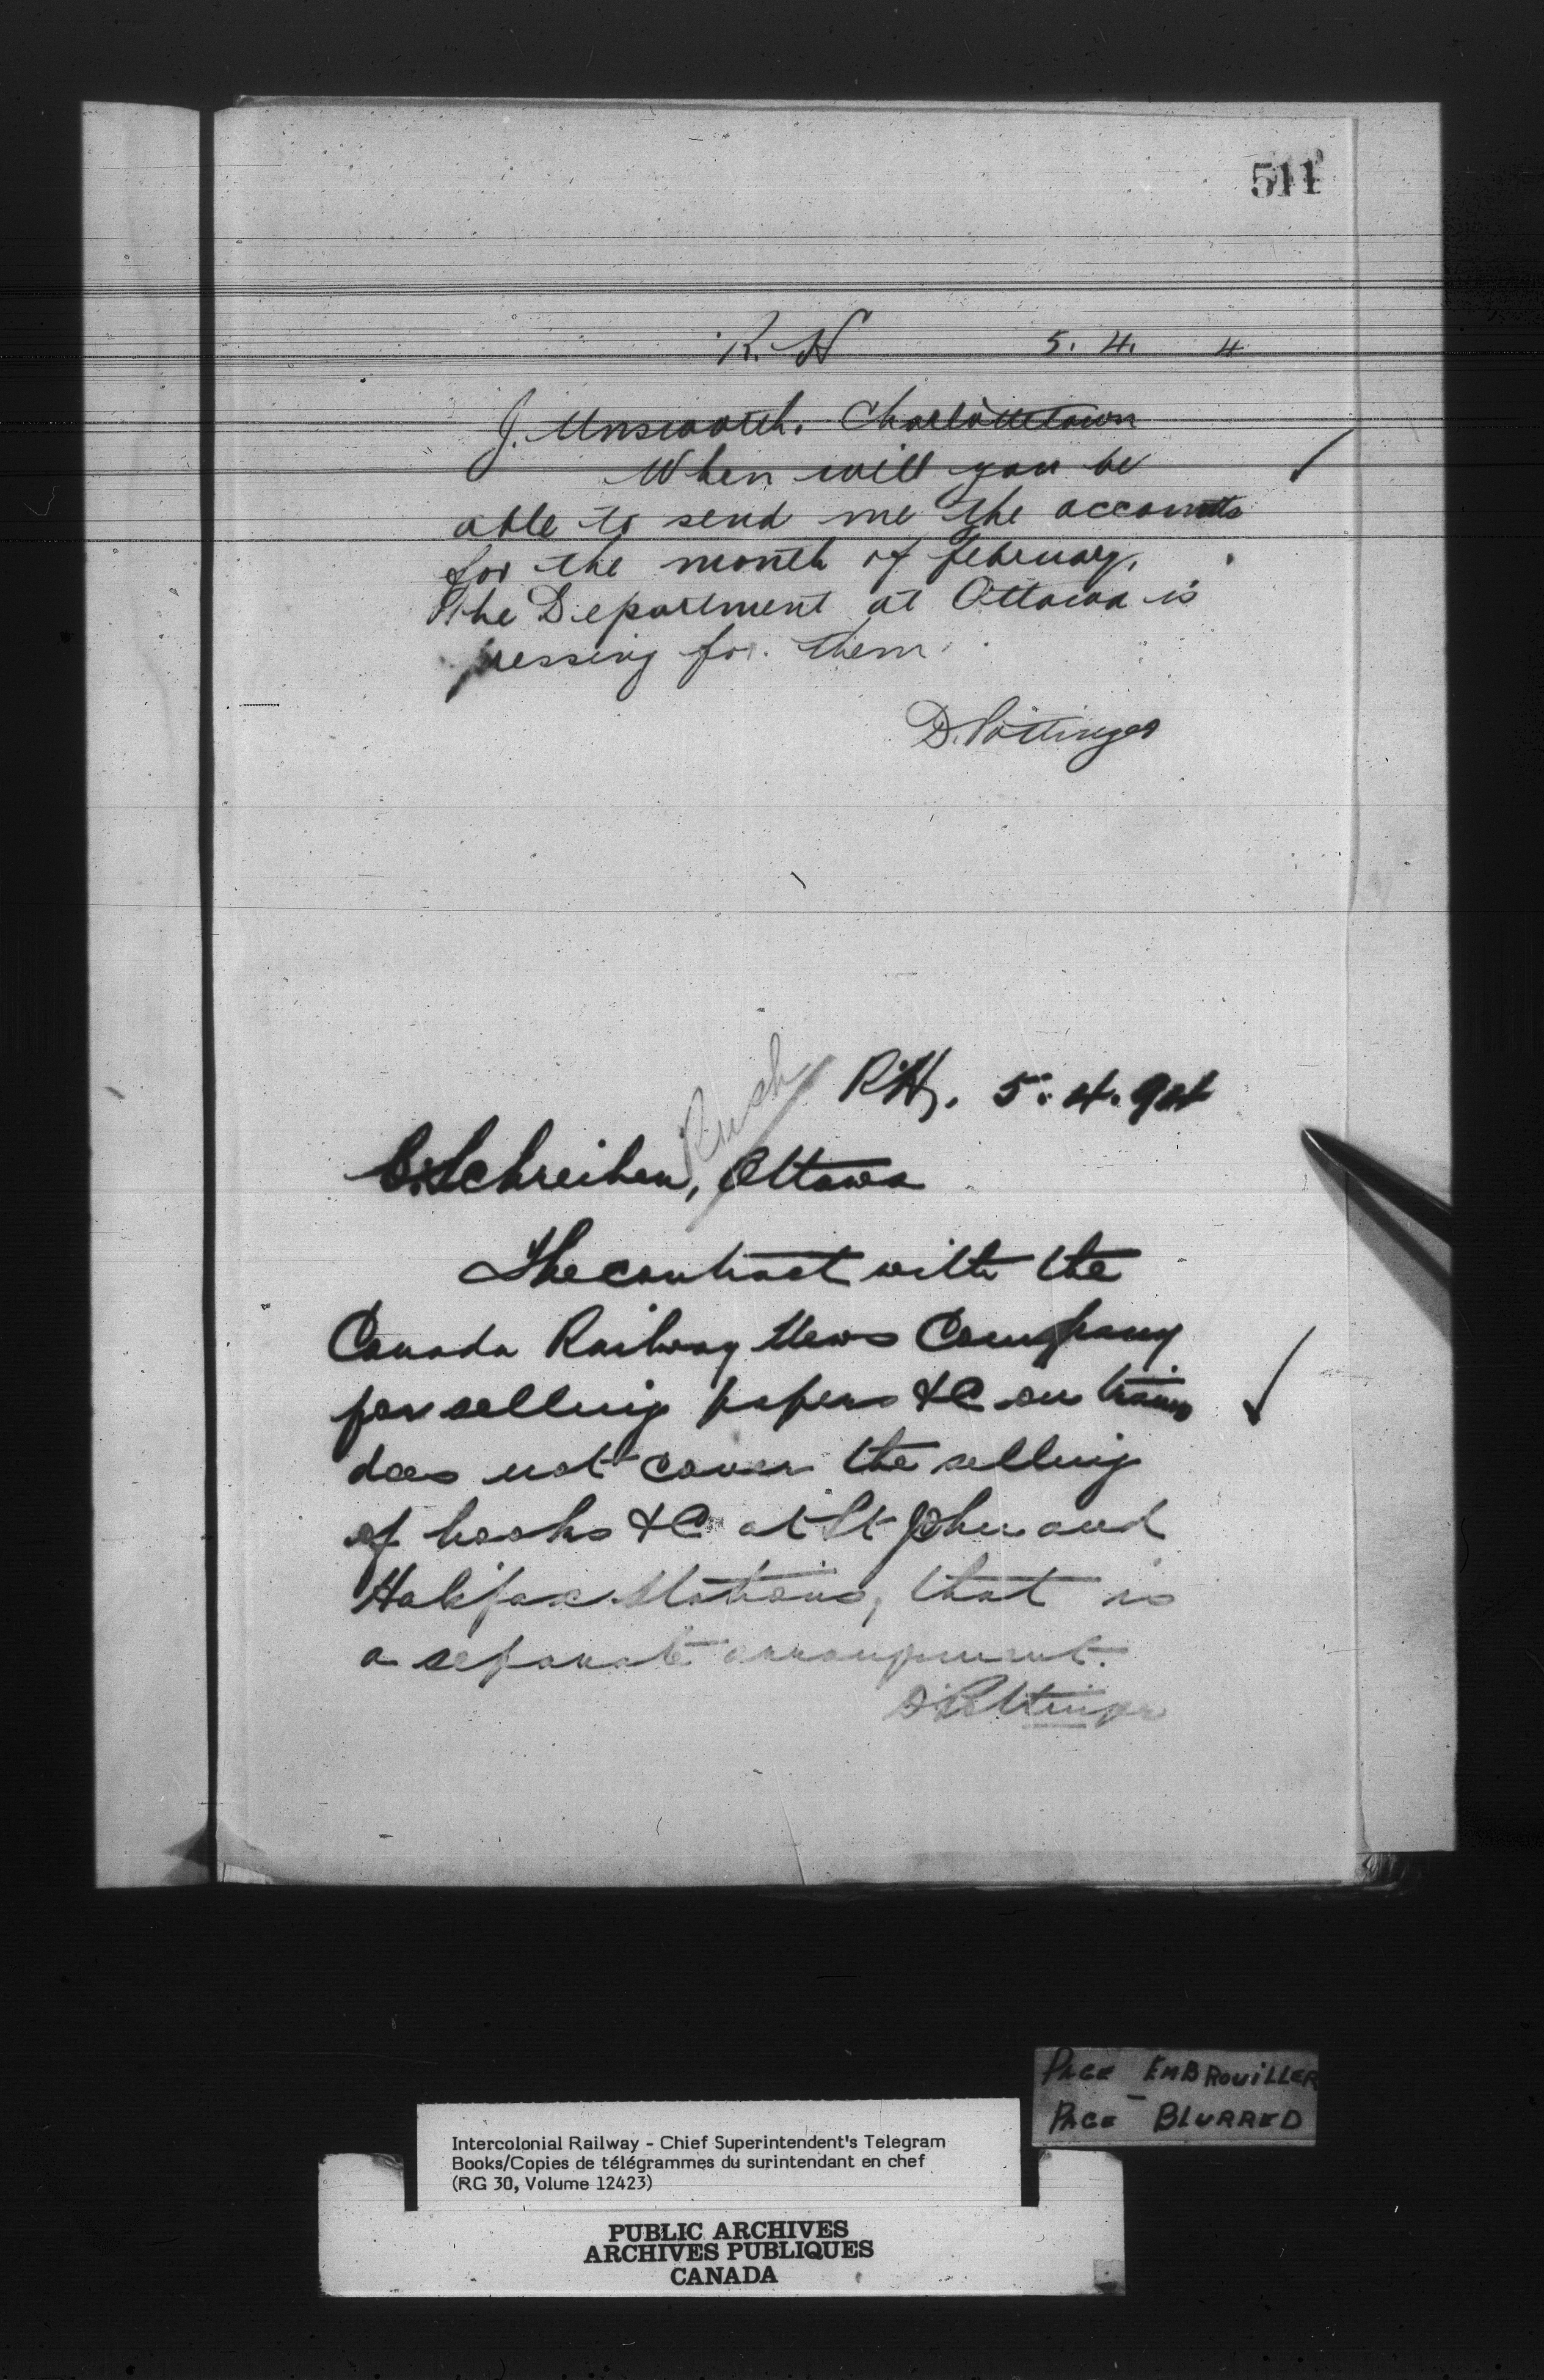 511
R. H 5. 4. 4
J. Unsworth. Charlottetown
When will you be
able to send me the accounts
for the month of February.
The Department at Ottawa is
pressing for them
D. Pottinger
Rush
R'H. 5. 4. 94
C. Schreiber, Ottawa
The contract with the
Canada Railway News Company
for selling papers &C on trains
does not cover the selling
of books &C at St John and
Halifax Stations, that is
a separate arrangement.
D Pottinger
PAGE EMBROUiLLER
PAGE BLURRED
Intercolonial Railway - Chief Superintendent's Telegram
Books/Copies de télégrammes du surintendant en chef
(RG 30, Volume 12423)
PUBLIC ARCHIVES
ARCHIVES PUBLIQUES
CANADA